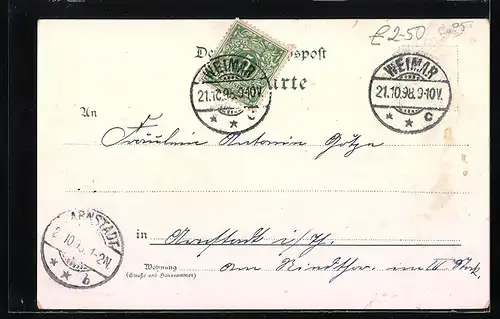 £2-50
De spost
WEIMAR
21.10.98.9-10V.
c
WEIMAR
21.10.98.9-10V.
c
arte
An
Fräulein Antonie Götze
ARNSTADT
10 1-2N.
b
in Arnstadt i/Th.
Wohnung
(Straße und Hausnummer)
am Riedthor, im II Stock.